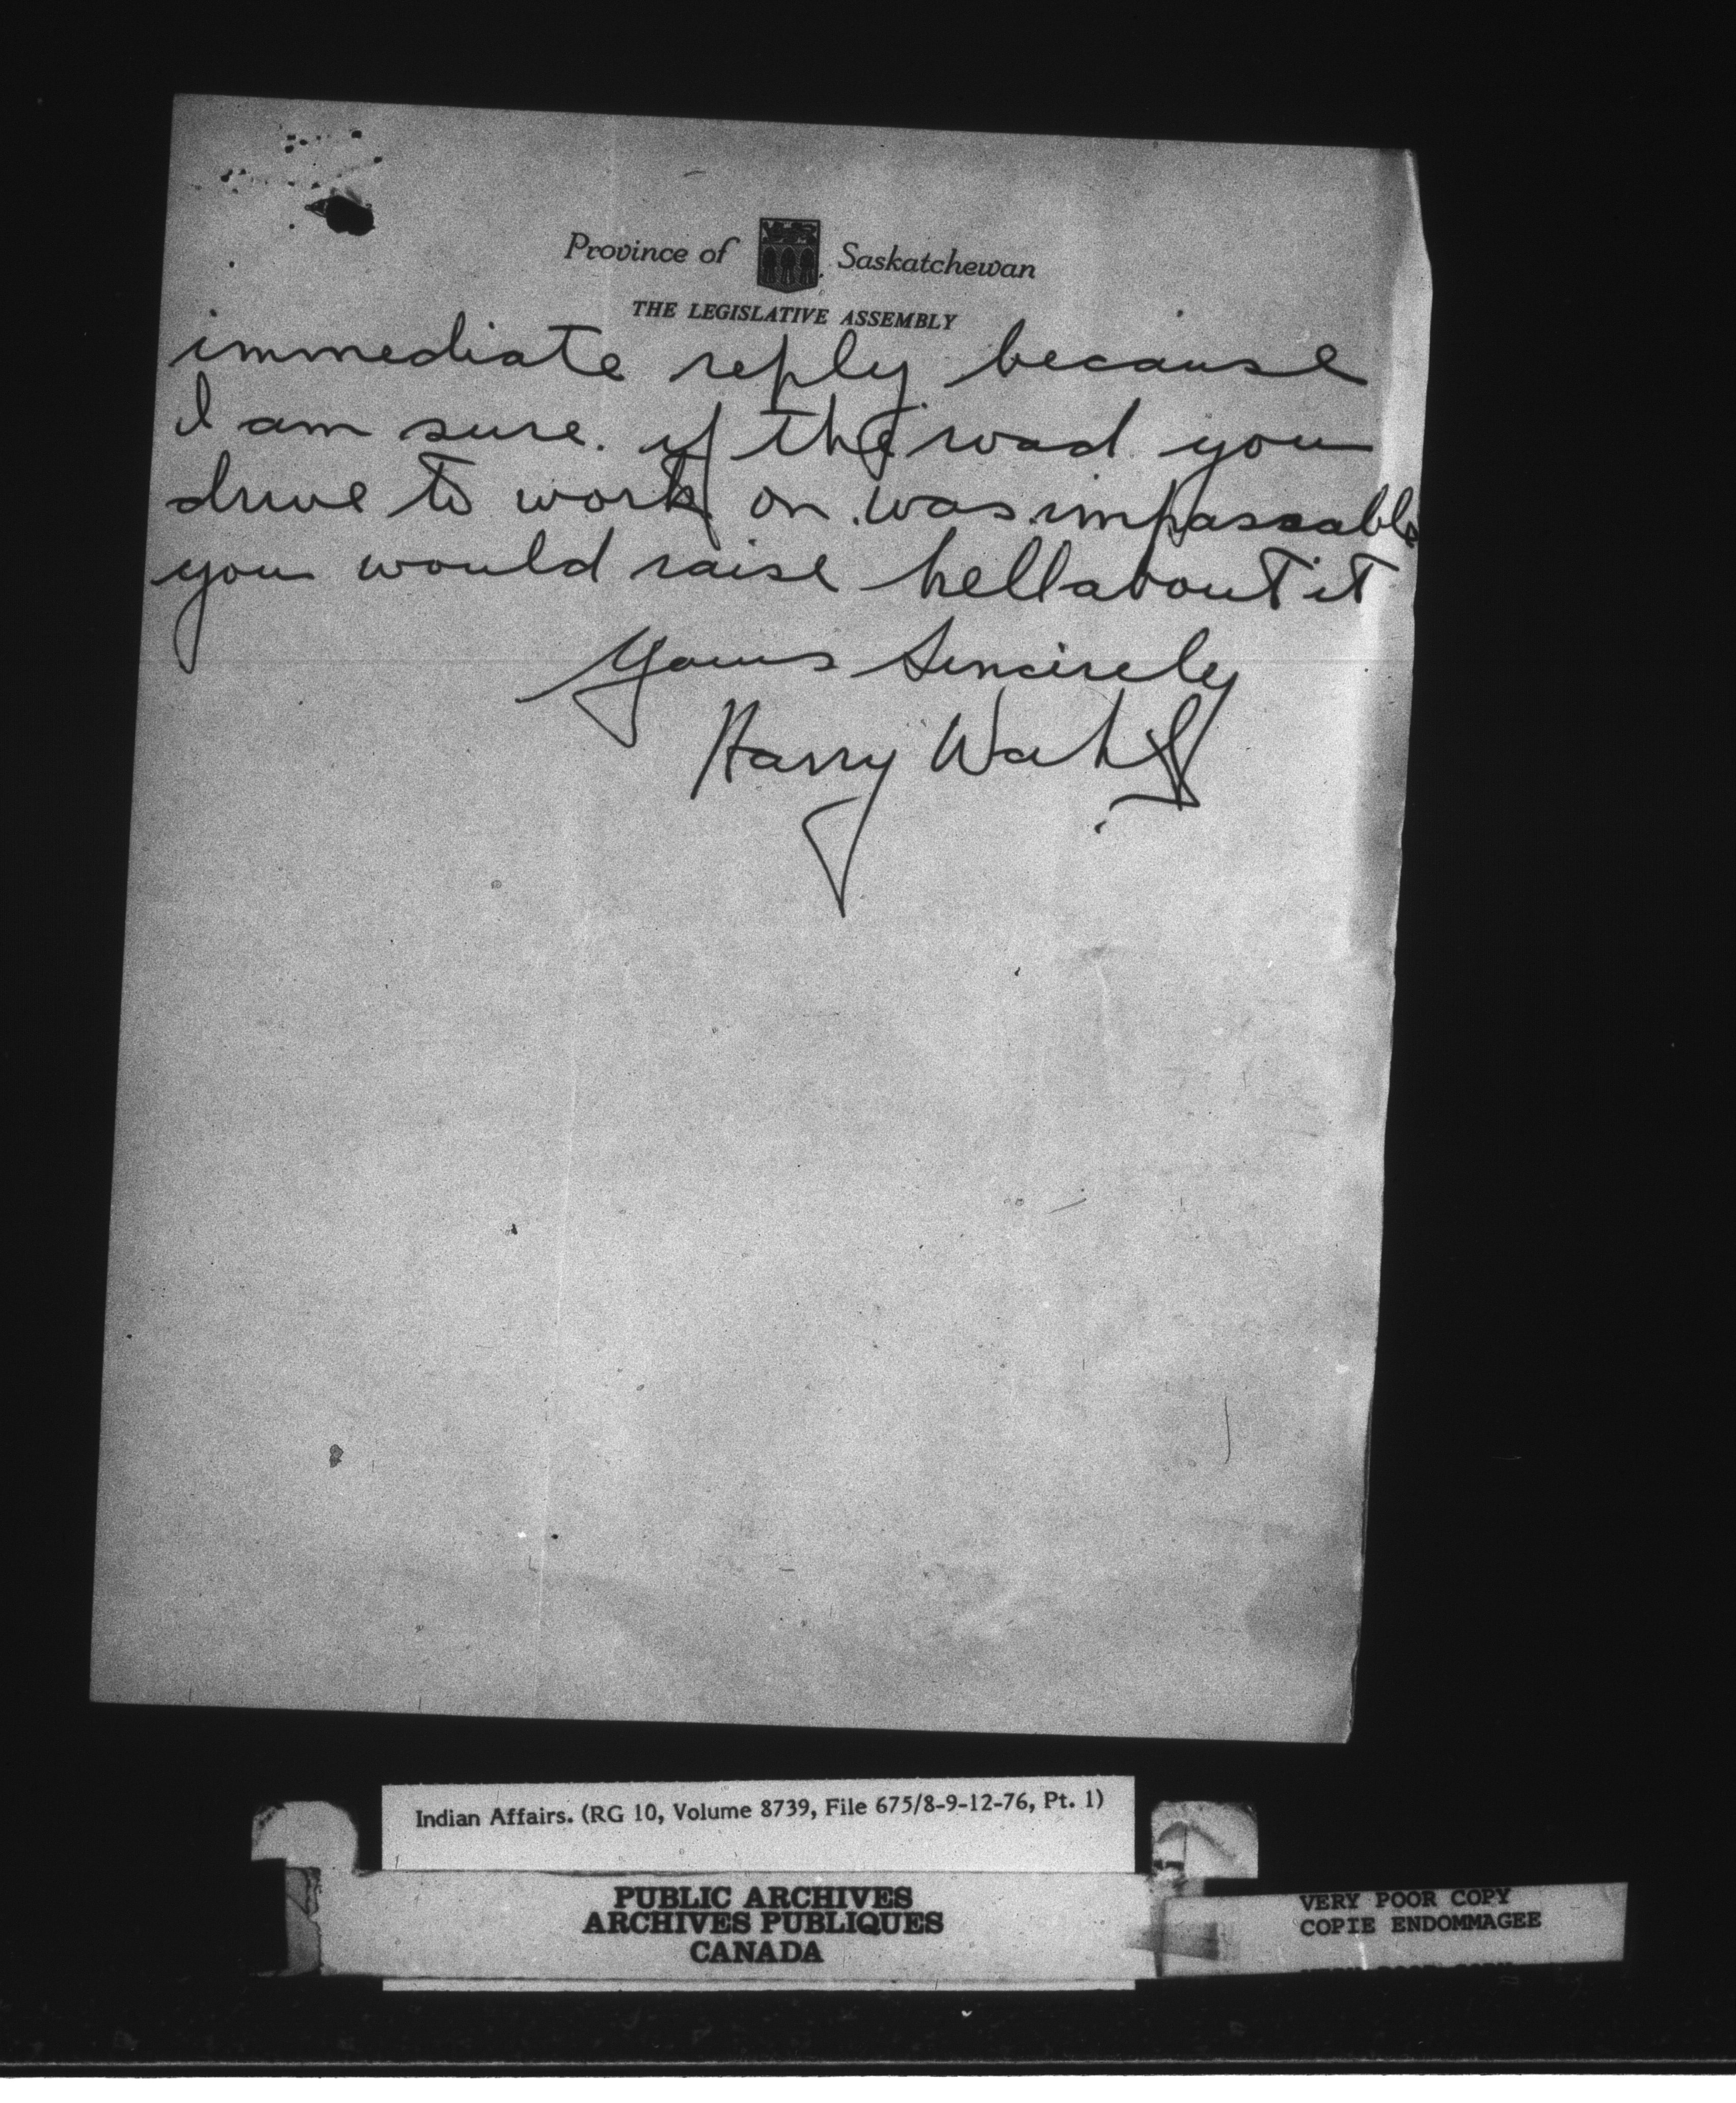 Province of Saskatchewan
THE LEGISLATIVE ASSEMBLY
immediate reply because
I am sure. if the road you
drive to work on was impassable
you would raise hell about it
Yours Sincirely
Harry
Indian Affairs. (RG 10, Volume 8739, File 675/8-9-12-76, Pt. 1)
PUBLIC ARCHIVES
ARCHIVES PUBLIQUES
CANADA
VERY POOR COPY
COPIE ENDOMMAGEE